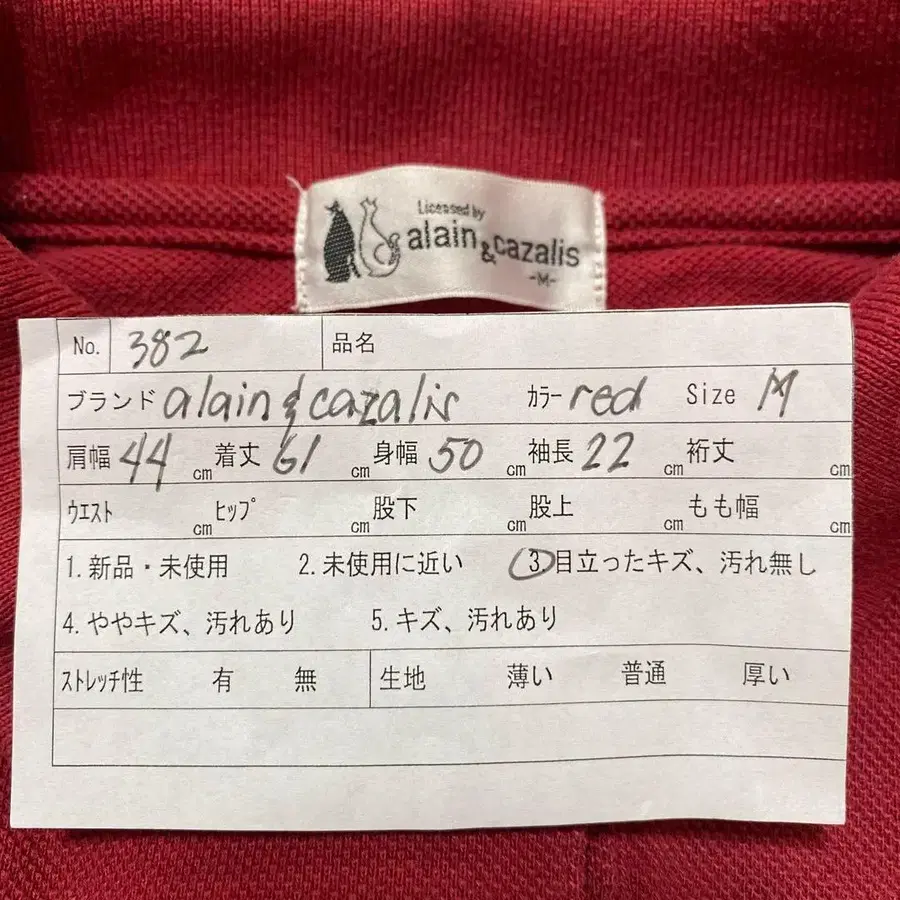 Licensed by
alain & cazalis
-M-
No. 382 品名
ブランド alain & cazalis カラー red Size M
肩幅 44 cm 着丈 61 cm 身幅 50 cm 袖長 22 cm 裄丈 cm
ウエスト cm ヒップ cm 股下 cm 股上 cm もも幅 cm
1. 新品・未使用 2. 未使用に近い 3. 目立ったキズ、汚れ無し
4. ややキズ、汚れあり 5. キズ、汚れあり
ストレッチ性 有 無 生地 薄い 普通 厚い